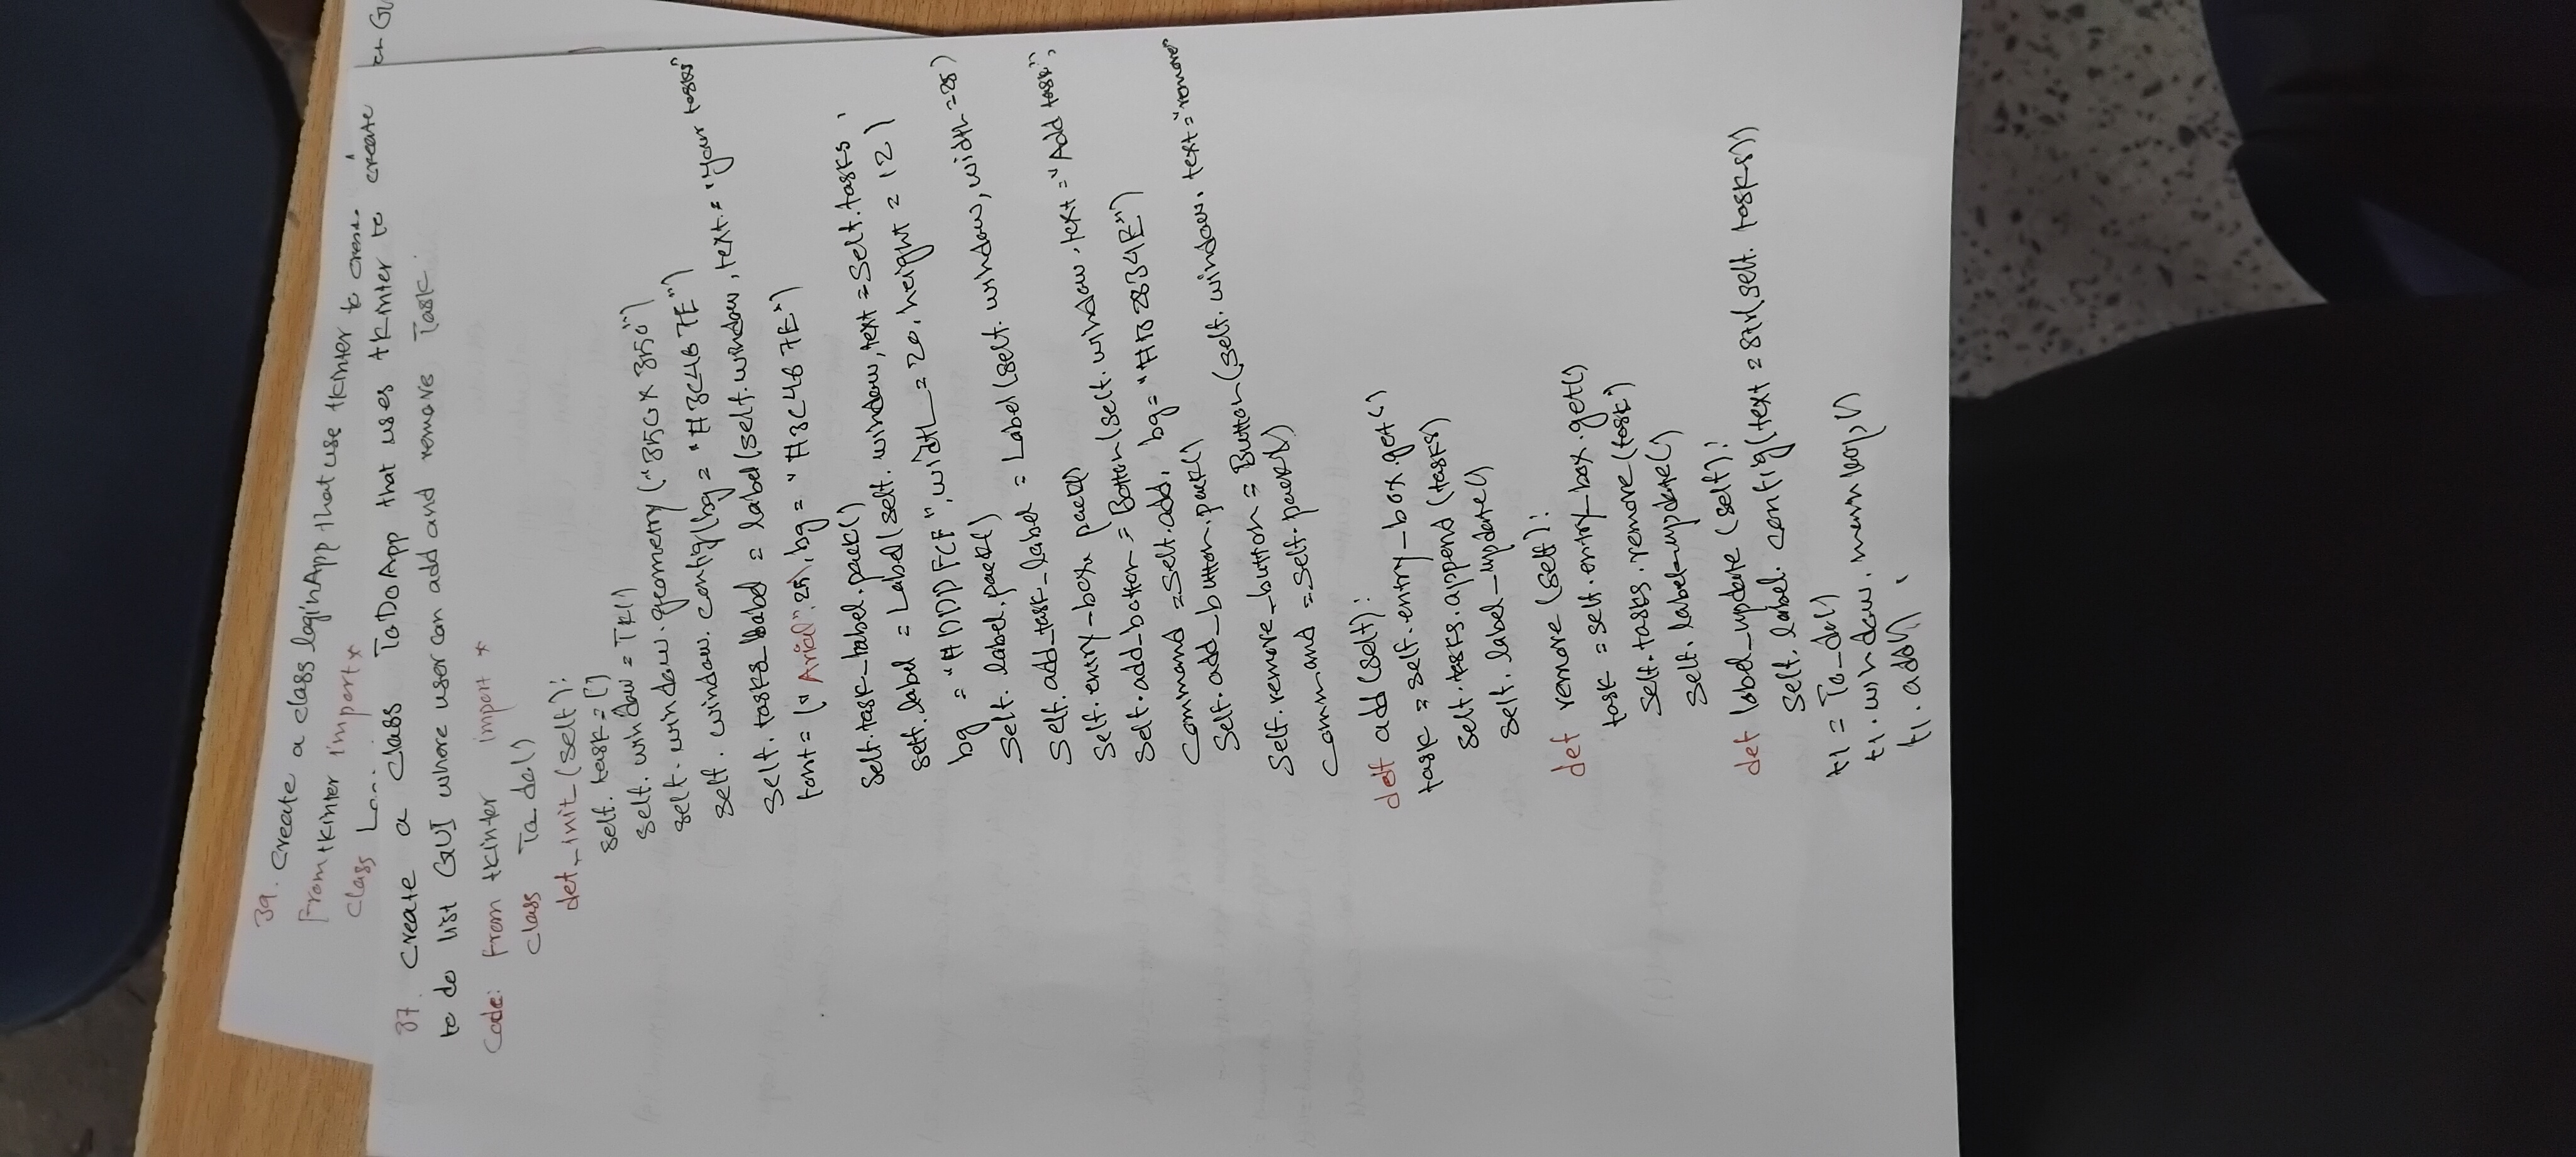 39. Create a class loginApp that use tkinter to
From tkinter import *
class
er GU
37. Create a class ToDoApp that uses tkinter to create
to do list GUI where user can add and remove Task
Code: from tkinter import *
class To_do()
def_init_(self):
self. task = []
self. window = Tk()
self. window. geometry ("350X350")
self. window. config(bg = "#3C467E")
self. tasks_label = label(self. window, text = "your tasks"
font = ("Arial", 25), bg = "#3C467E")
self.task_label.pack()
self.label = Label(self. window, text = self.tasks,
bg = "#DDDFCF", width = 20, height = 12)
self. label.pack()
self. add_task_label = Label(self. window, width = 25)
self. entry-box. pack()
self. add_botton = Botton(self. window. text = "Add task",
Command = self.add, bg = "#D2834E")
self. add_button.pack()
self. remove_button = Button(self. window. text = "remove"
Command = self. pack()
def add(self):
task = self. entry_box.get()
self. tasks. append (tasks)
self. label_update()
def remove (self):
task = self. entry_box.get()
self. tasks. remove (task)
self. label_update()
def label_update (self):
self. label. config(text = str(self. tasks))
t1 = To_do()
t1. window. mainloop()
t1. add()